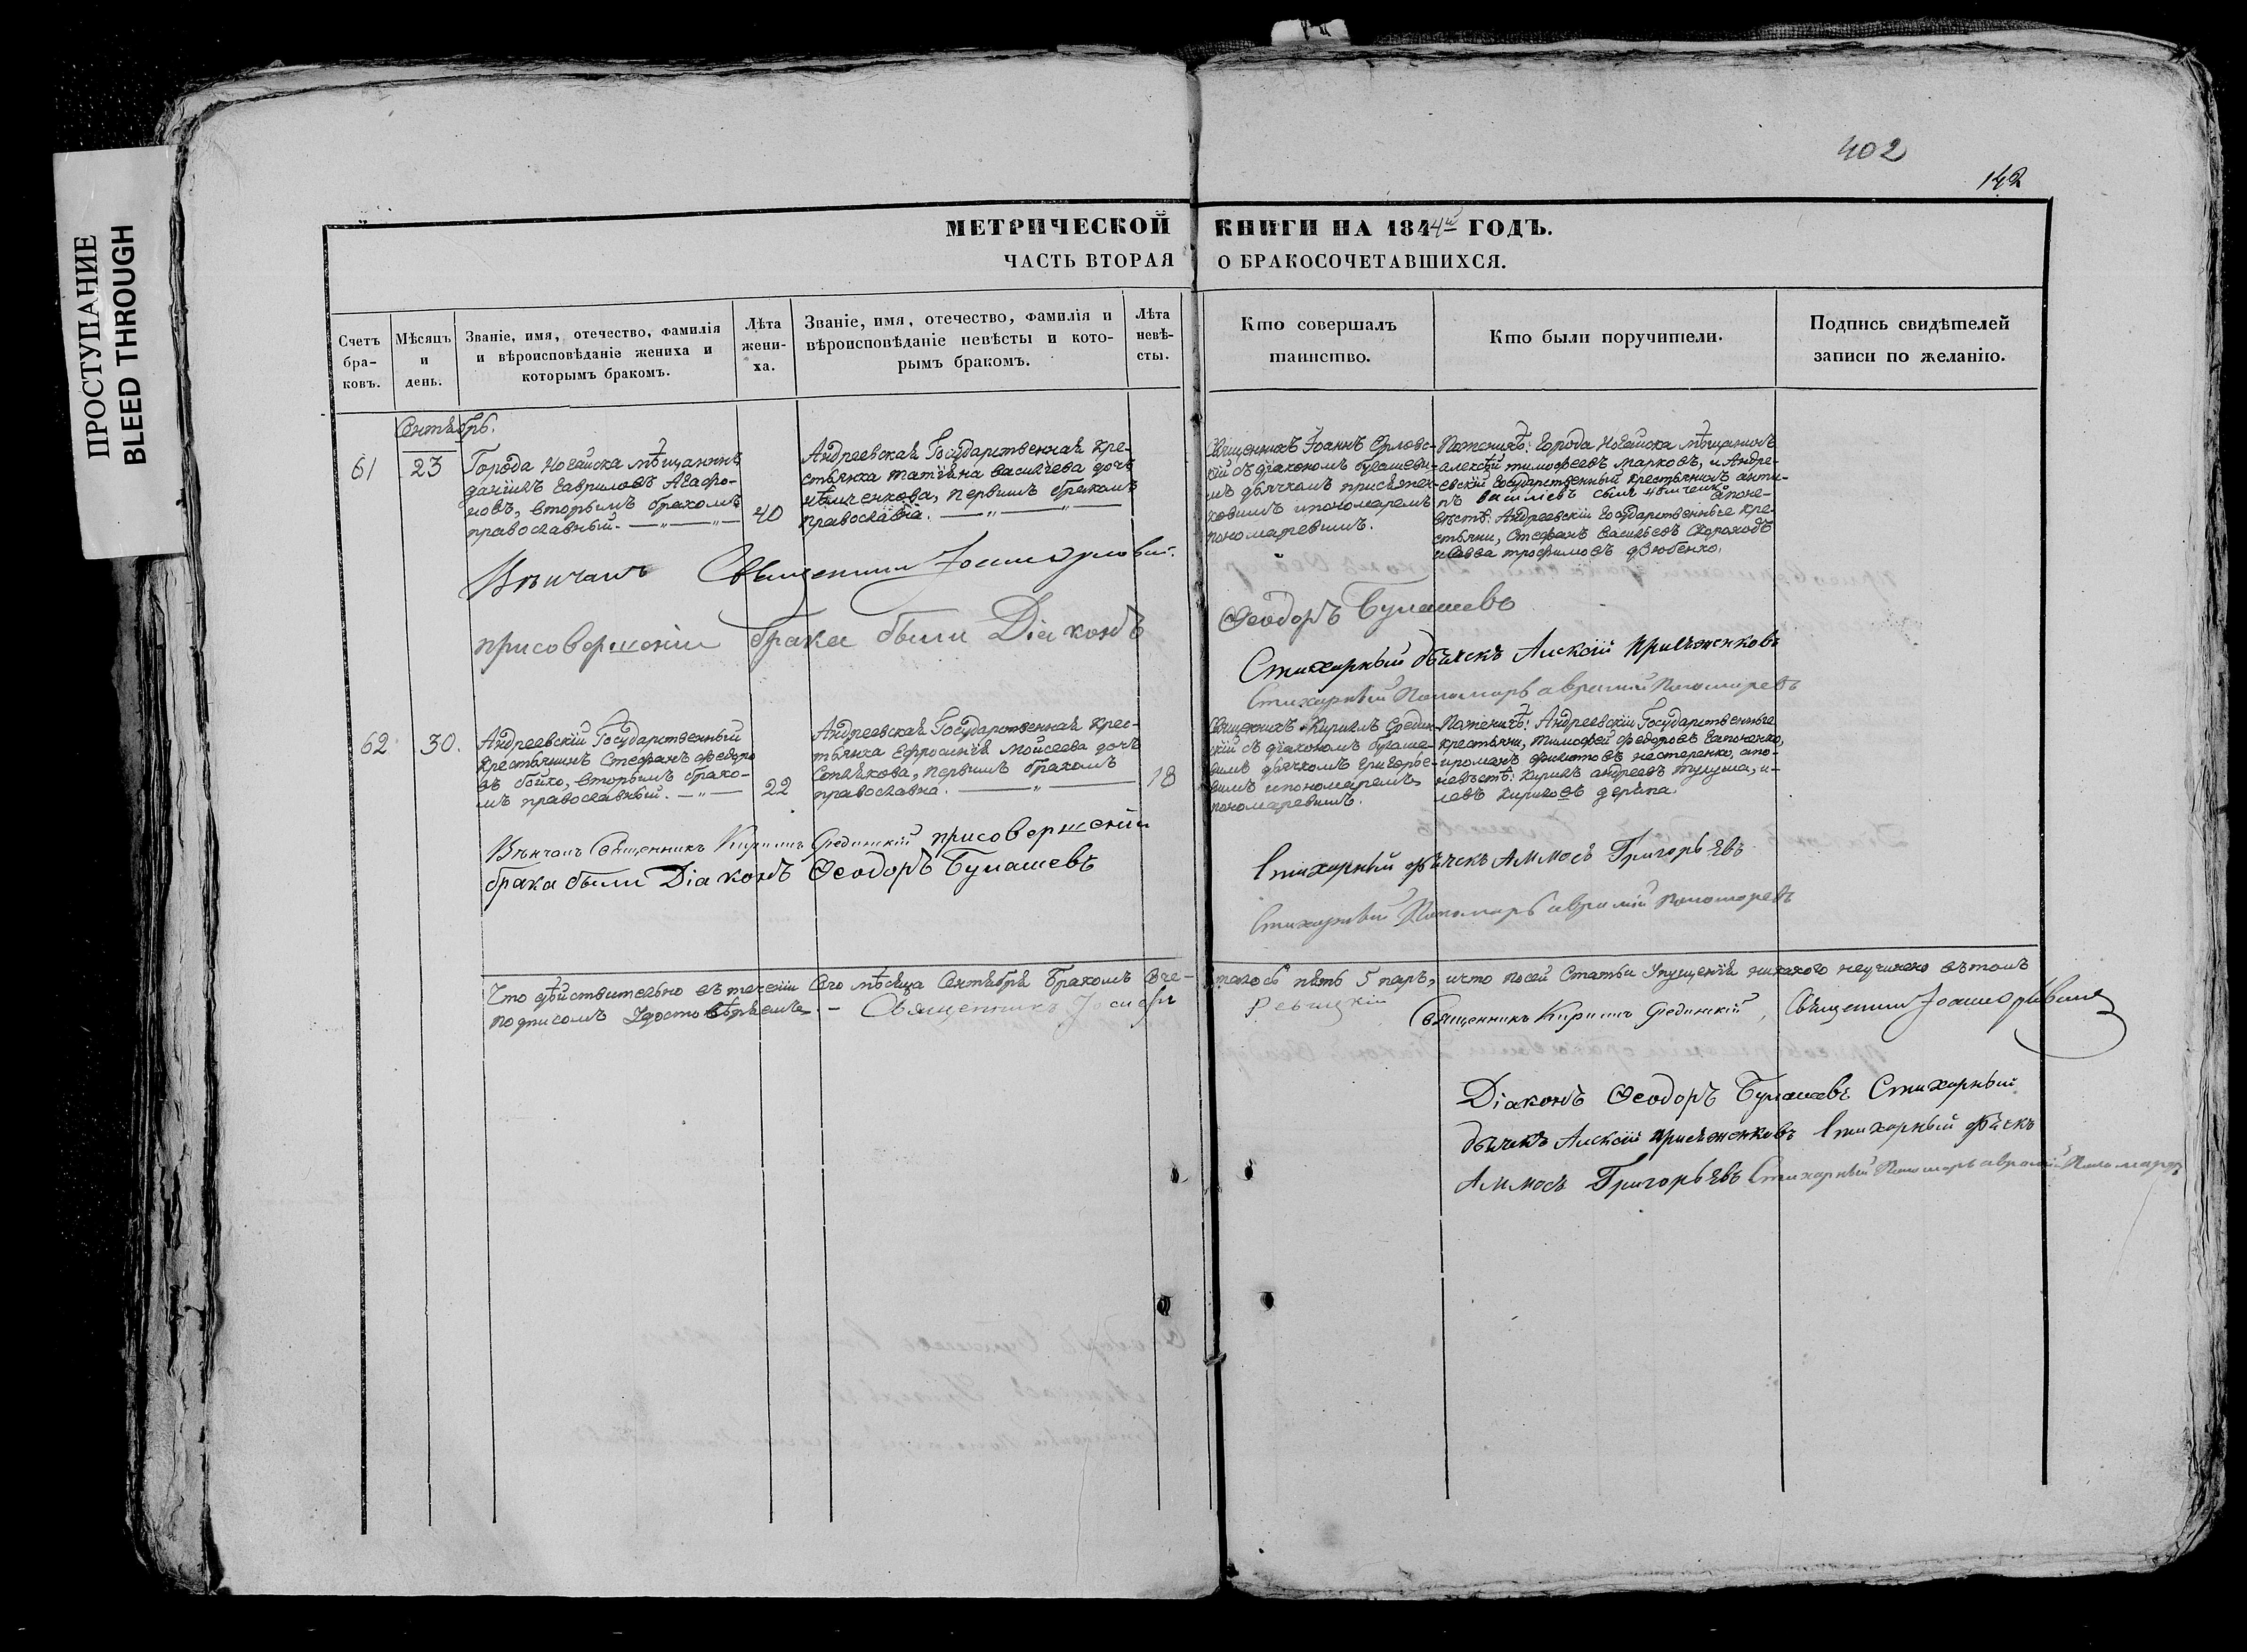 ПРОСТУПАНИЕ
BLEED THROUGH
402
142
МЕТРИЧЕСКОЙ КНИГИ НА 1844й ГОДЪ.
ЧАСТЬ ВТОРАЯ О БРАКОСОЧЕТАВШИХСЯ.
Счетъ
бра-
ковъ.
Мѣсяцъ
и
день.
Званіе, имя, отечество, фамилія
и вѣроисповѣданіе жениха и
которымъ бракомъ.
Лѣта
жени-
ха.
Званіе, имя, отечество, фамилія и
вѣроисповѣданіе невѣсты и кото-
рымъ бракомъ.
Лѣта
невѣ-
сты.
Кто совершалъ
таинство.
Кто были поручители.
Подпись свидѣтелей
записи по желанію.
Сентябрь.
61
23
Города Ногайска мѣщанинъ
даніилъ Гавриловъ Агафо-
новъ, вторымъ бракомъ
православный.
40
Андреевская Государственная Кре-
стьянка татіяна васильева дочь
нѣмченкова, первымъ бракомъ
православна.
Священникъ Іоаннъ Орловс-
кій съ діакономъ булашеви-
мъ дьячкомъ присяжен-
ковимъ ипономаремъ
пономаревимъ.
Поженихѣ: Города Ногайска мѣщанинъ
алексѣй тимофеевъ марковъ, и Андре-
евскій Государственный крестьянинъ анти-
пъ василіевъ сынъ нѣмченко апоне-
вѣстѣ: Андреевскіи Государственные Кре-
стьяни, Стефанъ васильевъ Скороходъ
исавва трофимовъ дзюбенко.
Вѣнчалъ Священникъ Іоаннъ Орловскій.
присовершеніи брака были Діаконъ
Ѳеодоръ Булашевъ
Стихарный дьячекъ Алексій присяженковъ
Стихарный Пономарь аврамій Пономаревъ
62
30.
Андреевскій Государственный
Крестьянинъ Стефанъ федоро
въ бойко, вторымъ брако-
мъ православный.
22
Андреевская Государственная Крес-
тьянка Ефросинія Мойсеева дочь
Сопѣлкова, первымъ бракомъ
православна.
18
Священникъ Кирилъ Средин-
скій съ діакономъ булаше-
вимъ дьячкомъ григорье-
вимъ ипономаремъ
пономаревимъ.
Поженихѣ: Андреевскіи Государственные
крестьяни, тимофей федоровъ Гапоненко,
ироманъ филатовъ нестеренко, апо-
невѣстѣ: кирилъ андреевъ тулупа, и-
левъ кириловъ деряпа.
Вѣнчалъ Священникъ Кириллъ Срединскій присовершеніи
брака были Діаконъ Ѳеодоръ Булашевъ
Стихарный дьячекъ Аммосъ Григорьевъ
Стихарный Пономарь аврамій Пономаревъ
Что дѣйствительно въ теченіи Сего мѣсяца Сентября Бракомъ Сче-талось пять 5 паръ, ичто посей Статьи Упущенія никакого неучинено вътомъ
подписомъ Удостовѣряемъ. – Священникъ Іосифъ Священникъ Кириллъ Срединскій, Священникъ Іоаннъ Орловскій
Діаконъ Ѳеодоръ Булашевъ Стихарный
дьячекъ Алексій присяженковъ Стихарный дьячекъ
Аммосъ Григорьевъ Стихарный Пономарь аврамій Пономаревъ